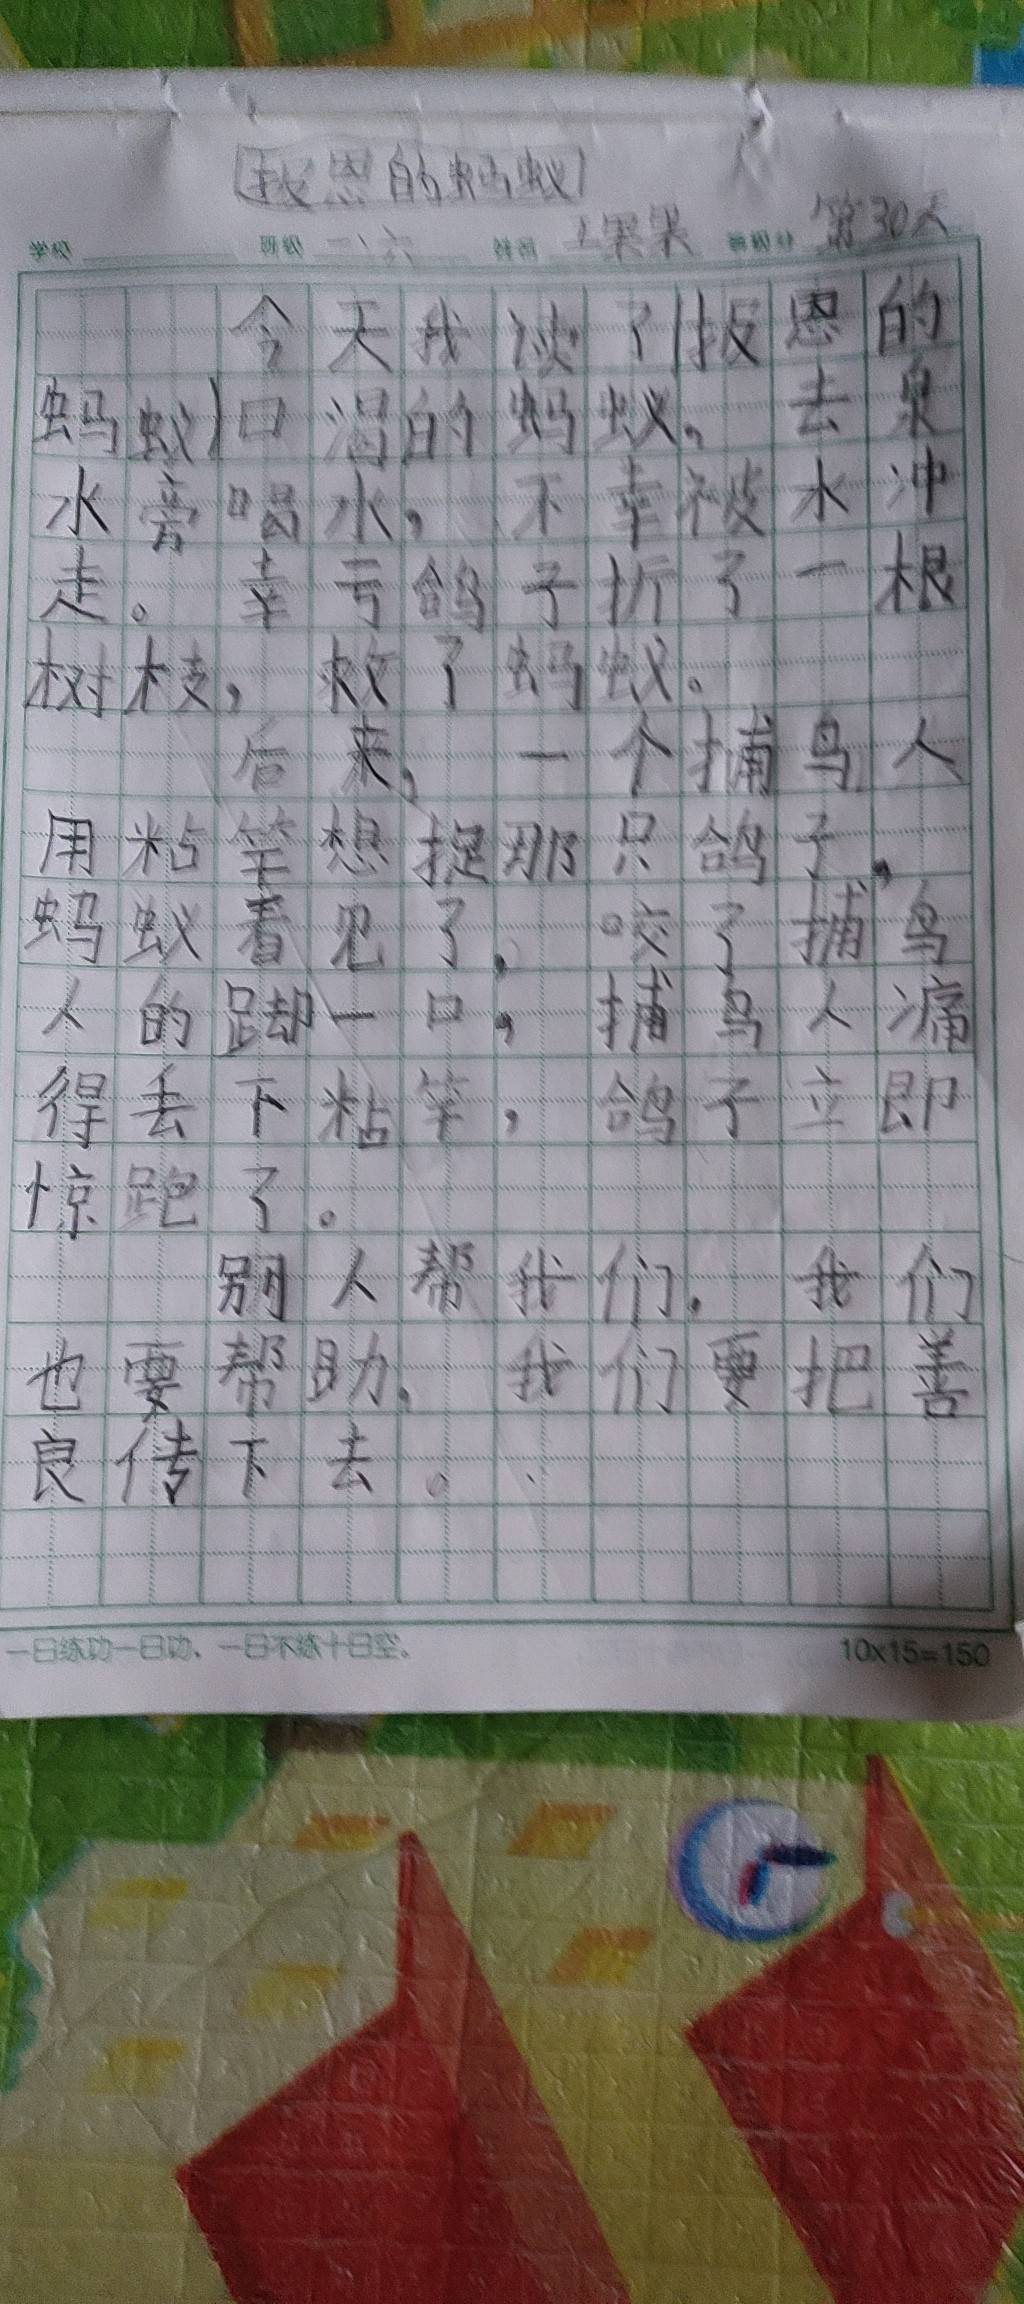 报恩的蚂蚁
学校 班级 二、六 姓名 王果果 等级分 第30天
今天我读了《报恩的
蚂蚁》口渴的蚂蚁。去泉
水旁喝水，不幸被水冲
走。幸亏鸽子折了一根
树枝，救了蚂蚁。
后来，一个捕鸟人
用粘竿想捉那只鸽子，
蚂蚁看见了，咬了捕鸟
人的脚一口，捕鸟人痛
得丢下粘竿，鸽子立即
惊跑了。
别人帮我们，我们
也要帮助，我们要把善
良传下去。
一日练功一日功、一日不练十日空。 10x15=150